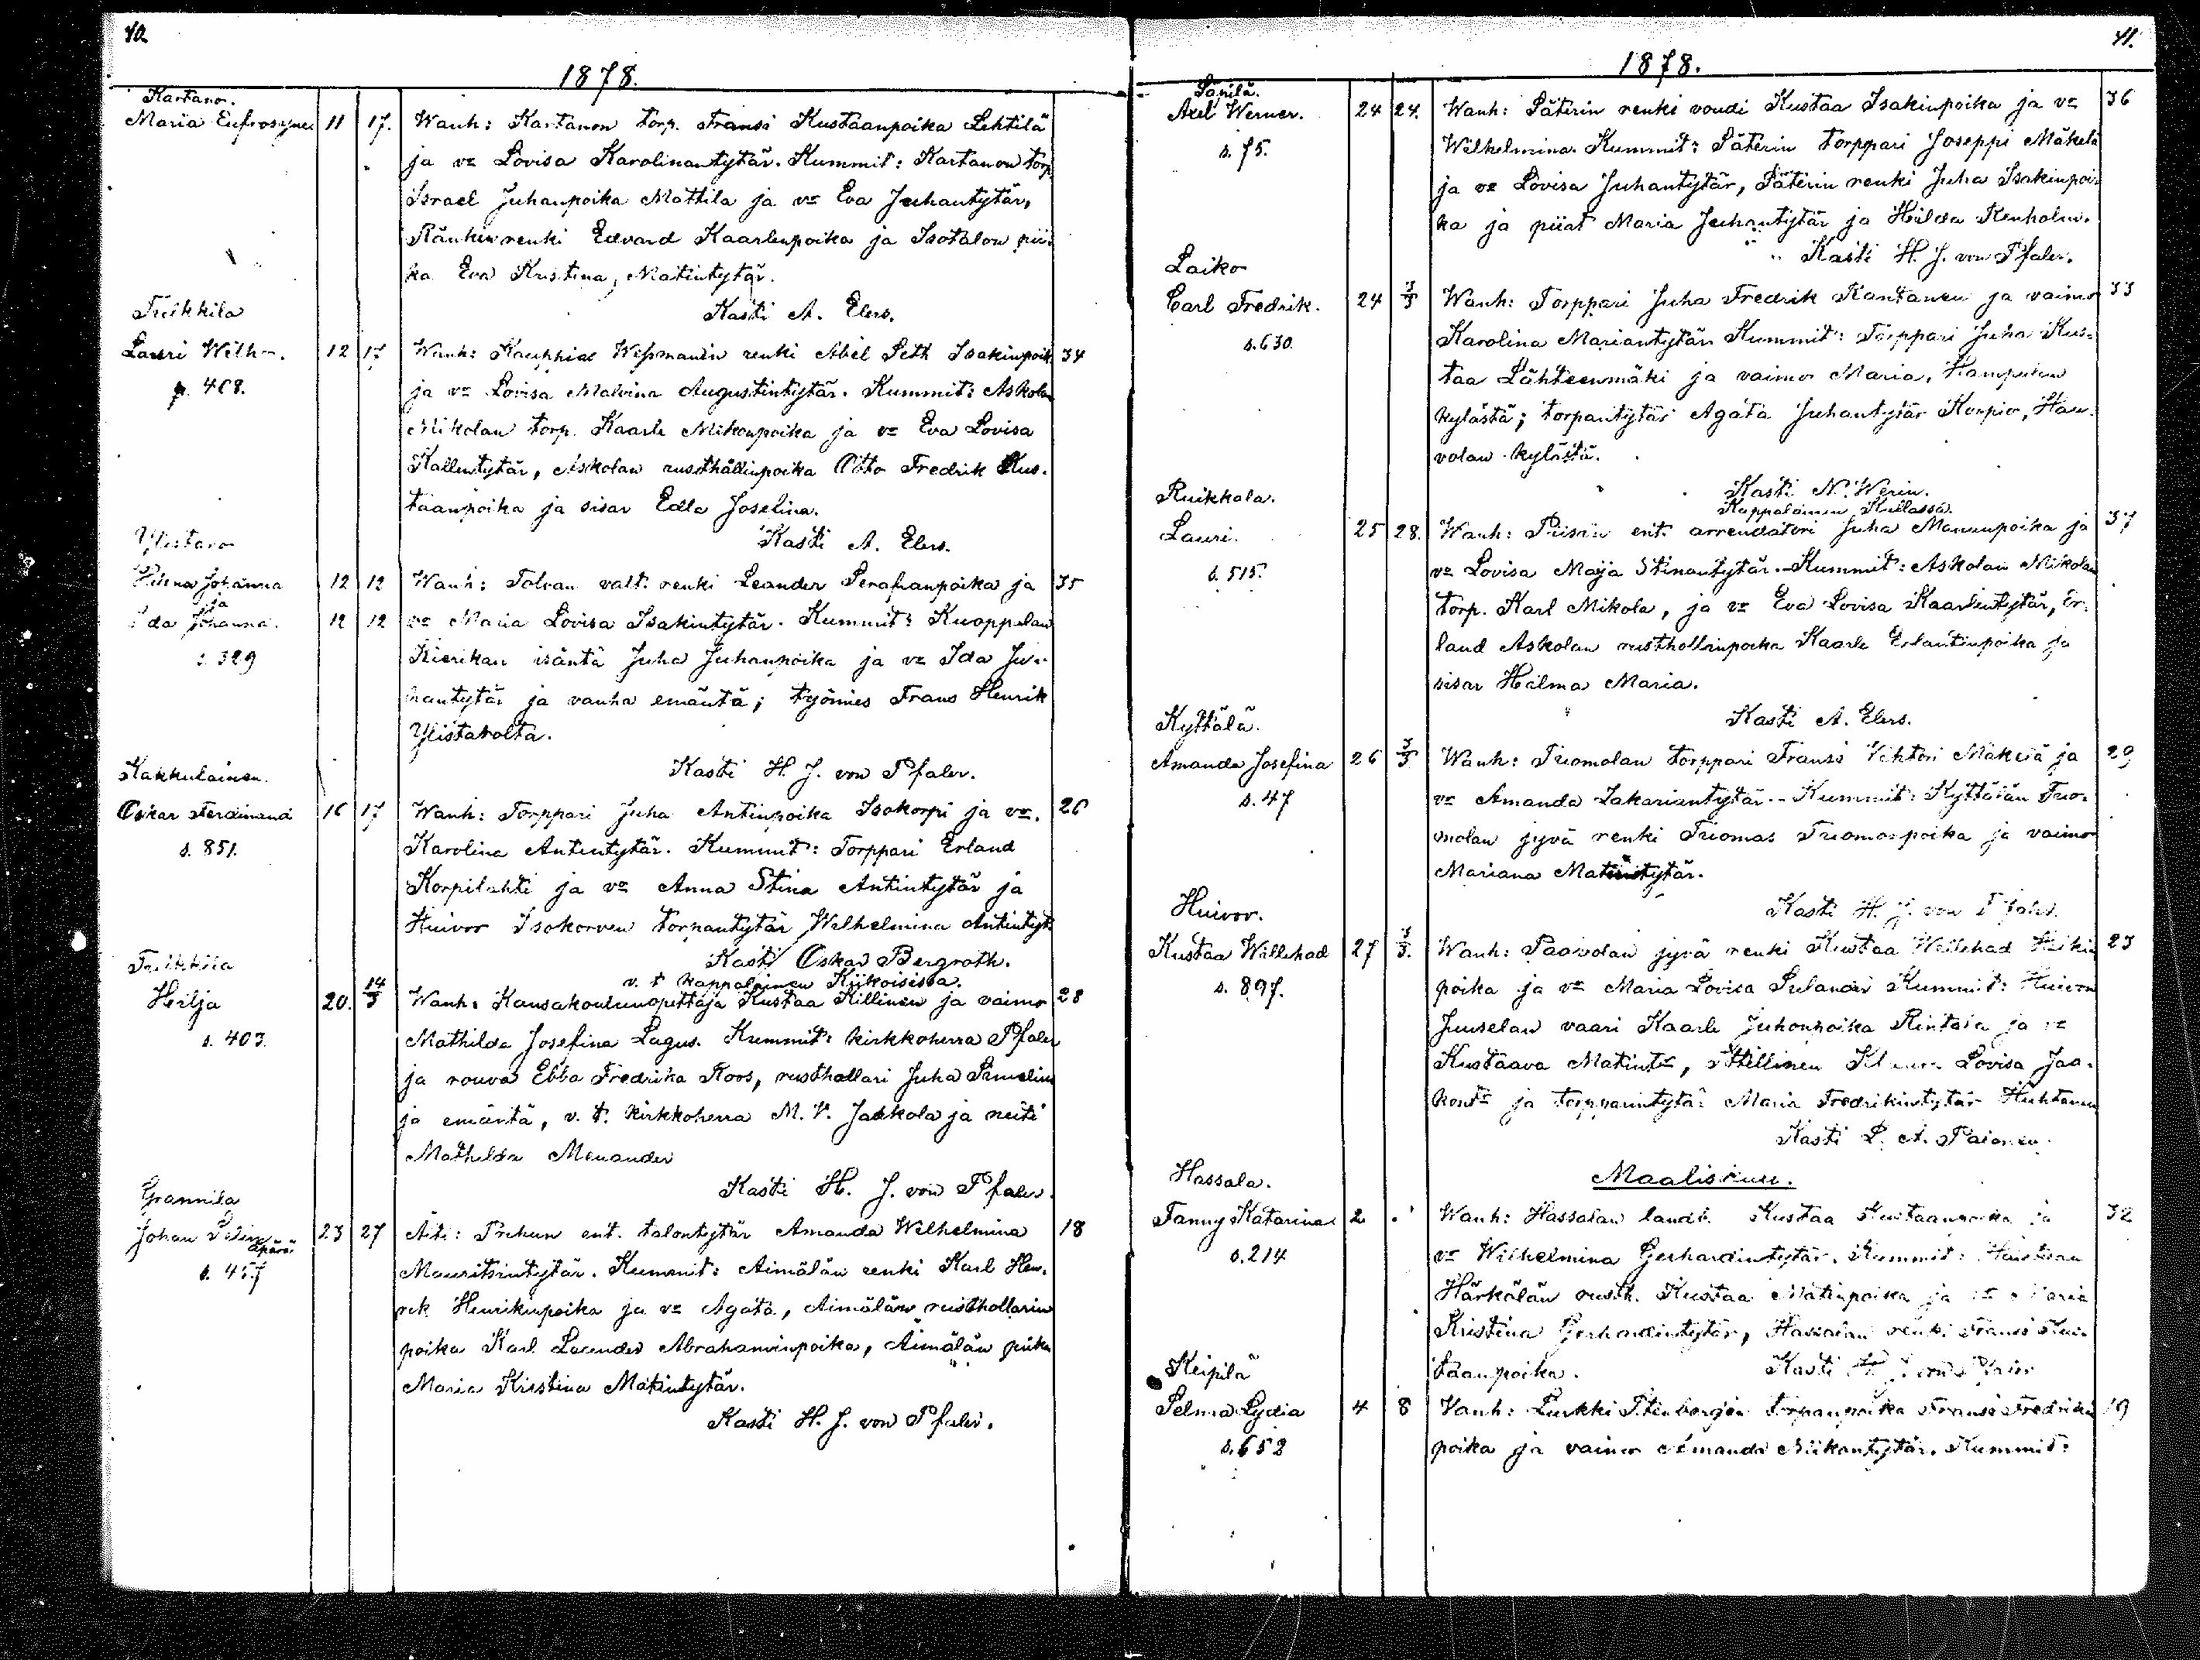 40
1878.
Kartano.
Maria Eufrosyne 11 17. Wanh: Kartanon torp. Fransi Kustaanpoika Lehtilä
ja vo Lovisa Karolinantytär. Kummit: Kartanon torp
Israel Juhanpoika Mattila ja vo Eva Juhantytär,
renki Edvard Kaarlenpoika ja Isotalon pii-
ka Eva Kristina, Matintytär.
Kasti A. Elers.
Friikkilä
Lauri Wilh. 12 17 Wanh: Kauppias Wessmanin renki Abel Seth Isakinpoik 34
s. 408. ja vo Lovisa Malvina Augustintytär. Kummit: Askolan
Mikolan torp. Kaarle Mikonpoika ja vo Eva Lovisa
Kallentytär, Askolan rusthållinpoika Otto Fredrik Kus-
taanpoika ja sisar Edla Josefina.
Kasti A. Elers.
Ylistaro
Johanna 12 12 Wanh: valt. renki Leander Serafianpoika ja 35
ja
Ida Johanna. 12 12 vo Maria Lovisa Isakintytär. Kummit: Kuoppalan
s. 329 Kierikan isäntä Juha Juhanpoika ja vo Ida Ju-
hantytär ja vanha emäntä; työmies Frans Henrik
Ylistarolta.
Kasti H. J. von Pfaler.
Kakkulainen.
Oskar Ferdinand 16 17 Wanh: Torppari Juha Antinpoika Isokorpi ja vo. 26
s. 851. Karolina Antintytär. Kummit: Torppari Erland
Korpilahti ja vo Anna Stina Antintytär ja
Huivor Isokorven torpantytär Wilhelmina Antintyt.
Kasti Oskar Bergroth.
v. t kappalainen Kiikoisissa.
Friikkilä
Hilja 20. 14/3 Wanh: Kansakoulunopettaja Kustaa Killinen ja vaimo 28
s. 403. Mathilda Josefina Lagus. Kummit: kirkkoherra Pfaler
ja rouva Ebba Fredrika Roos, rusthollari Juha
ja emäntä, v. t. kirkkoherra M. V. Jaakkola ja neiti
Mathilda Menander
Kasti H. J. von Pfaler.
Grannila
Johan 23 27 Äiti: Prihun ent. talontytär Amanda Wilhelmina 18
äpärä
s. 457 Mauritsintytär. Kummit: Äimälän renki Karl Hen-
rik Henrikinpoika ja vo Agata, Äimälän rusthollarin
poika Karl Leander Abrahaminpoika, Äimälän piika
Maria Kristina Matintytär.
Kasti H. J. von Pfaler.
41.
1878.
Sänilä.
Axel Werner. 24 24. Wanh: Säterin renki voudi Kustaa Isakinpoika ja vo 36
s. 75. Wilhelmina. Kummit: Säterin torppari Joseppi Mäkelä
ja vo Lovisa Juhantytär, Säterin renki Juha Isakinpoi-
ka ja piiat Maria Juhantytär ja Hilda Renholm.
Kasti H. J. von Pfaler.
Laiko
Carl Fredrik. 24 3/3 Wanh: Torppari Juha Fredrik Rantanen ja vaimo 33
s. 630. Karolina Mariantytär. Kummit: Torppari Juha Kus-
taa Lähteenmäki ja vaimo Maria,
kylästä; torparitytär Agata Juhantytär Korpio, Har-
volan kylästä.
Kasti N. Werin.
Kappalainen Kullassa.
Ruikkala.
Lauri. 25 28. Wanh: ent. arrendatori Juha Manunpoika ja 37
s. 515. vo Lovisa Maja Stinantytär. Kummit: Askolan Mikolan
torp. Karl Mikola, ja vo Eva Lovisa Kaarlentytär, Er-
land Askolan rusthollinpoika Kaarle Erlantinpoika ja
sisar Hilma Maria.
Kasti A. Elers.
Kyttälä.
Amanda Josefina 26 3/3 Wanh: Tuomolan torppari Fransi Vihtori Mäkelä ja 29
s. 47 vo Amanda Sakariantytär. Kummit: Kyttälän Tuo-
molan jyvä renki Tuomas Tuomaspoika ja vaimo
Mariana Matintytär.
Kasti H. J. von Pfaler.
Huivor.
Kustaa Willehad 27 3/3. Wanh: Paavolan jyvä renki Kustaa Willehad Heikin 23
s. 897. poika ja vo Maria Lovisa Selander Kummit: Huivorin
Juuselan vaari Kaarle Juhonpoika Rintala ja vo
Kustaava Matintr, Lovisa Jaa-
kontr ja torpparintytär Maria Fredrikintytär Huhtanen
Kasti L. A.
Hassala. Maaliskuu.
Fanny Katarina 2 Wanh: Hassalan Kustaa Kustaanpoika ja 32
s. 214 vo Wilhelmina Gerhardintytär. Kummit:
Härkälän rusth. Kustaa Matinpoika ja vo Maria
Kristina Gerhardintytär, Hassalan renki Fransi Kus-
taanpoika. Kasti H. J. von Pfaler
Keipilä
Selma Lydia 4 8 Wanh: torpanpoika Fransi Fredrikin 19
s. 652 poika ja vaimo Amanda Niikantytär. Kummit: